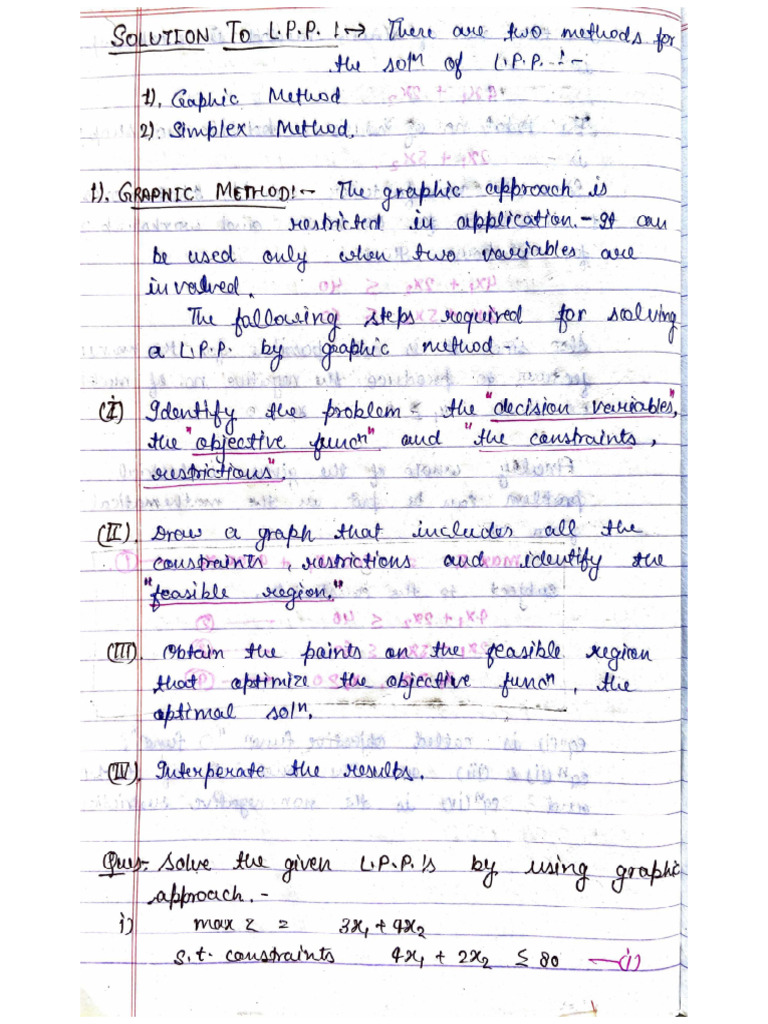 SOLUTION TO L.P.P. :→ There are two methods for
the solⁿ of L.P.P. :-
1). Graphic Method
2). Simplex Method.
1). GRAPHIC METHOD:- The graphic approach is
restricted in application. - It can
be used only when two variables are
involved.
The following steps required for solving
a L.P.P. by graphic method
(I) Identify the problem - the "decision variables",
the "objective funcⁿ" and "the constraints,
restrictions".
(II). Draw a graph that includes all the
constraints, restrictions and identify the
"feasible region."
(III). Obtain the points on the feasible region
that optimize the objective funcⁿ, the
optimal solⁿ.
(IV). Interperate the results.
Ques:- Solve the given L.P.P.'s by using graphic
approach. -
i) max z = 3x₁ + 4x₂
s.t. constraints 4x₁ + 2x₂ ≤ 80 —(i)